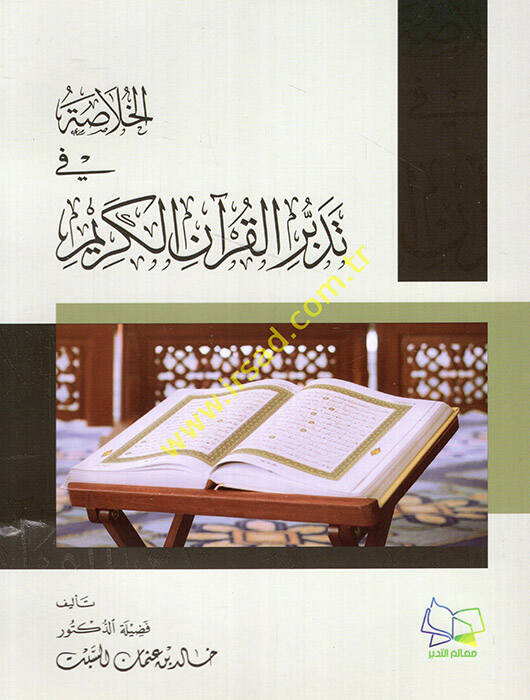 الخُلَاصَة
فِي
تَدَبُّرِ القُرْآنِ الكَرِيْمِ
www.irsad.com.tr
تأليف
فضيلة الدكتور
خالد بن عثمان السبت
معالم التدبر